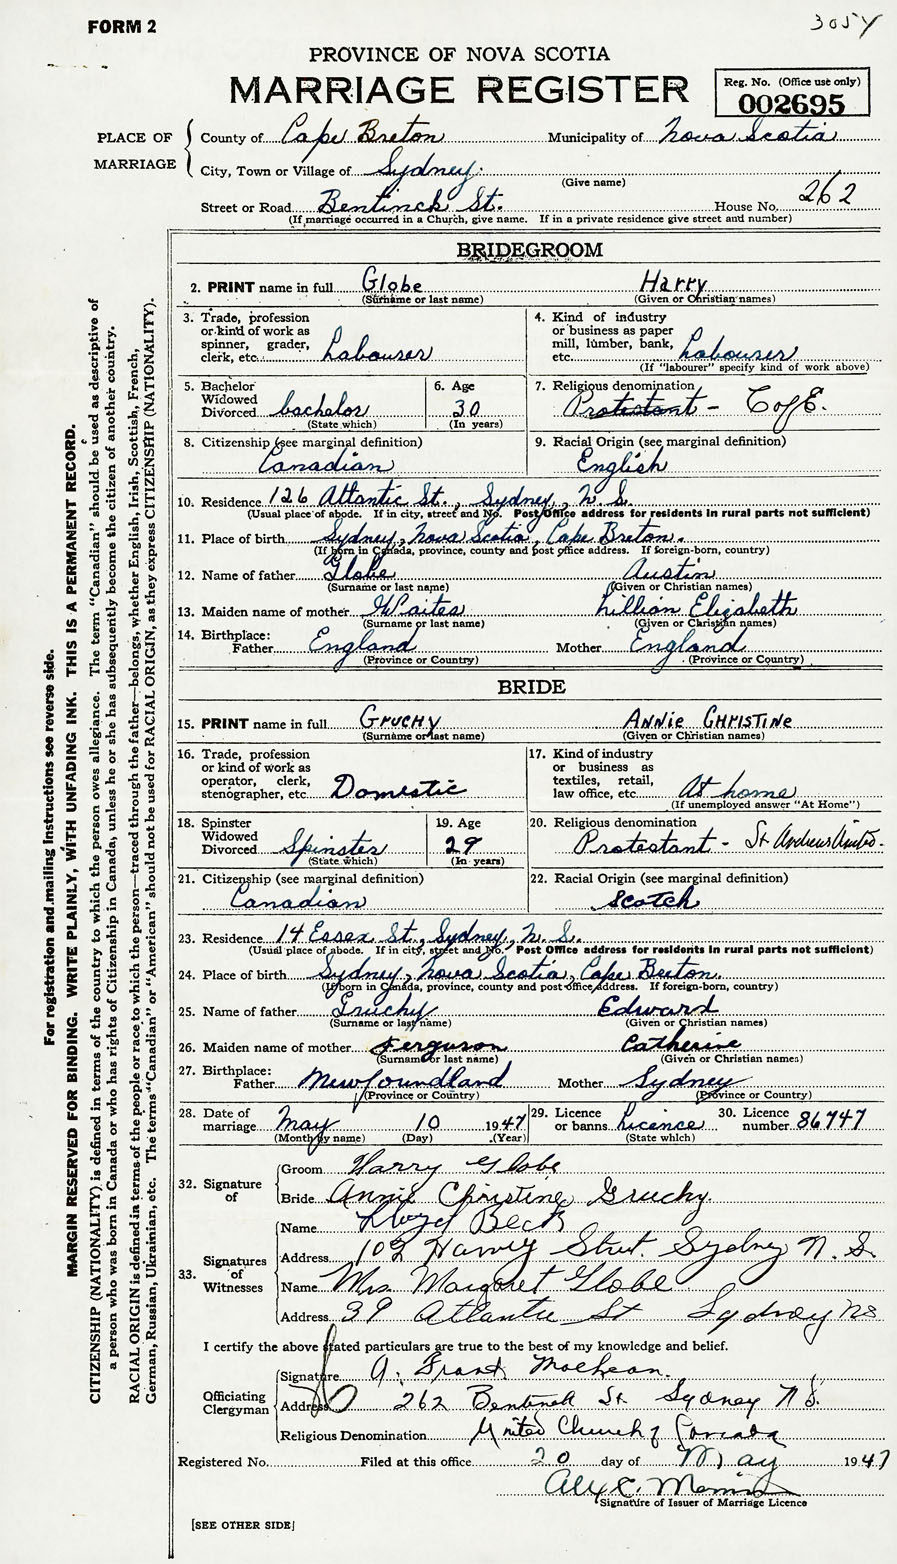 FORM 2
3054
PROVINCE OF NOVA SCOTIA
MARRIAGE REGISTER
Reg. No. (Office use only)
002695
PLACE OF MARRIAGE
County of Cape Breton Municipality of Nova Scotia
City, Town or Village of Sydney.
(Give name)
Street or Road Bentinck St. House No. 262
(If marriage occurred in a Church, give name. If in a private residence give street and number)
BRIDEGROOM
2. PRINT name in full Globe Harry
(Surname or last name) (Given or Christian names)
3. Trade, profession or kind of work as spinner, grader, clerk, etc. Labourer
4. Kind of industry or business as paper mill, lumber, bank, etc. Labourer
(If "labourer" specify kind of work above)
5. Bachelor Widowed Divorced bachelor
(State which)
6. Age 30
(In years)
7. Religious denomination Protestant - C of E.
8. Citizenship (see marginal definition) Canadian
9. Racial Origin (see marginal definition) English
10. Residence 126 Atlantic St., Sydney, N.S.
(Usual place of abode. If in city, street and No. Post Office address for residents in rural parts not sufficient)
11. Place of birth Sydney, Nova Scotia, Cape Breton.
(If born in Canada, province, county and post office address. If foreign-born, country)
12. Name of father Globe Austin
(Surname or last name) (Given or Christian names)
13. Maiden name of mother Lillian Elizabeth
(Surname or last name) (Given or Christian names)
14. Birthplace: Father England Mother England
(Province or Country) (Province or Country)
BRIDE
15. PRINT name in full Gruchy Annie Christine
(Surname or last name) (Given or Christian names)
16. Trade, profession or kind of work as operator, clerk, stenographer, etc. Domestic
17. Kind of industry or business as textiles, retail, law office, etc. At home
(If unemployed answer "At Home")
18. Spinster Widowed Divorced Spinster
(State which)
19. Age 29
(In years)
20. Religious denomination Protestant - St Andrews United.
21. Citizenship (see marginal definition) Canadian
22. Racial Origin (see marginal definition) Scotch
23. Residence 14 Essex St., Sydney, N.S.
(Usual place of abode. If in city, street and No. Post Office address for residents in rural parts not sufficient)
24. Place of birth Sydney, Nova Scotia, Cape Breton.
(If born in Canada, province, county and post office address. If foreign-born, country)
25. Name of father Gruchy Edward
(Surname or last name) (Given or Christian names)
26. Maiden name of mother Ferguson Catherine
(Surname or last name) (Given or Christian names)
27. Birthplace: Father Newfoundland Mother Sydney
(Province or Country) (Province or Country)
28. Date of marriage May 10 1947
(Month by name) (Day) (Year)
29. Licence or banns Licence
(State which)
30. Licence number 86747
32. Signature of
Groom Harry Globe
Bride Annie Christine Gruchy
33. Signatures of Witnesses
Name Lloyd Beck
Address 102 Harvey Street. Sydney N.S.
Name Mrs. Margaret Globe
Address 39 Atlantic St Sydney NS
I certify the above stated particulars are true to the best of my knowledge and belief.
Officiating Clergyman
Signature A. Grant MacLean.
Address 262 Bentinck St. Sydney N.S.
Religious Denomination United Church of Canada
Registered No. Filed at this office 20 day of May 1947
Signature of Issuer of Marriage Licence
[SEE OTHER SIDE]
For registration and mailing instructions see reverse side.
MARGIN RESERVED FOR BINDING. WRITE PLAINLY, WITH UNFADING INK. THIS IS A PERMANENT RECORD.
CITIZENSHIP (NATIONALITY) is defined in terms of the country to which the person owes allegiance. The term "Canadian" should be used as descriptive of
a person who was born in Canada or who has rights of Citizenship in Canada, unless he or she has subsequently become the citizen of another country.
RACIAL ORIGIN is defined in terms of the people or race to which the person—traced through the father—belongs, whether English, Irish, Scottish, French,
German, Russian, Ukrainian, etc. The terms "Canadian" or "American" should not be used for RACIAL ORIGIN, as they express CITIZENSHIP (NATIONALITY).